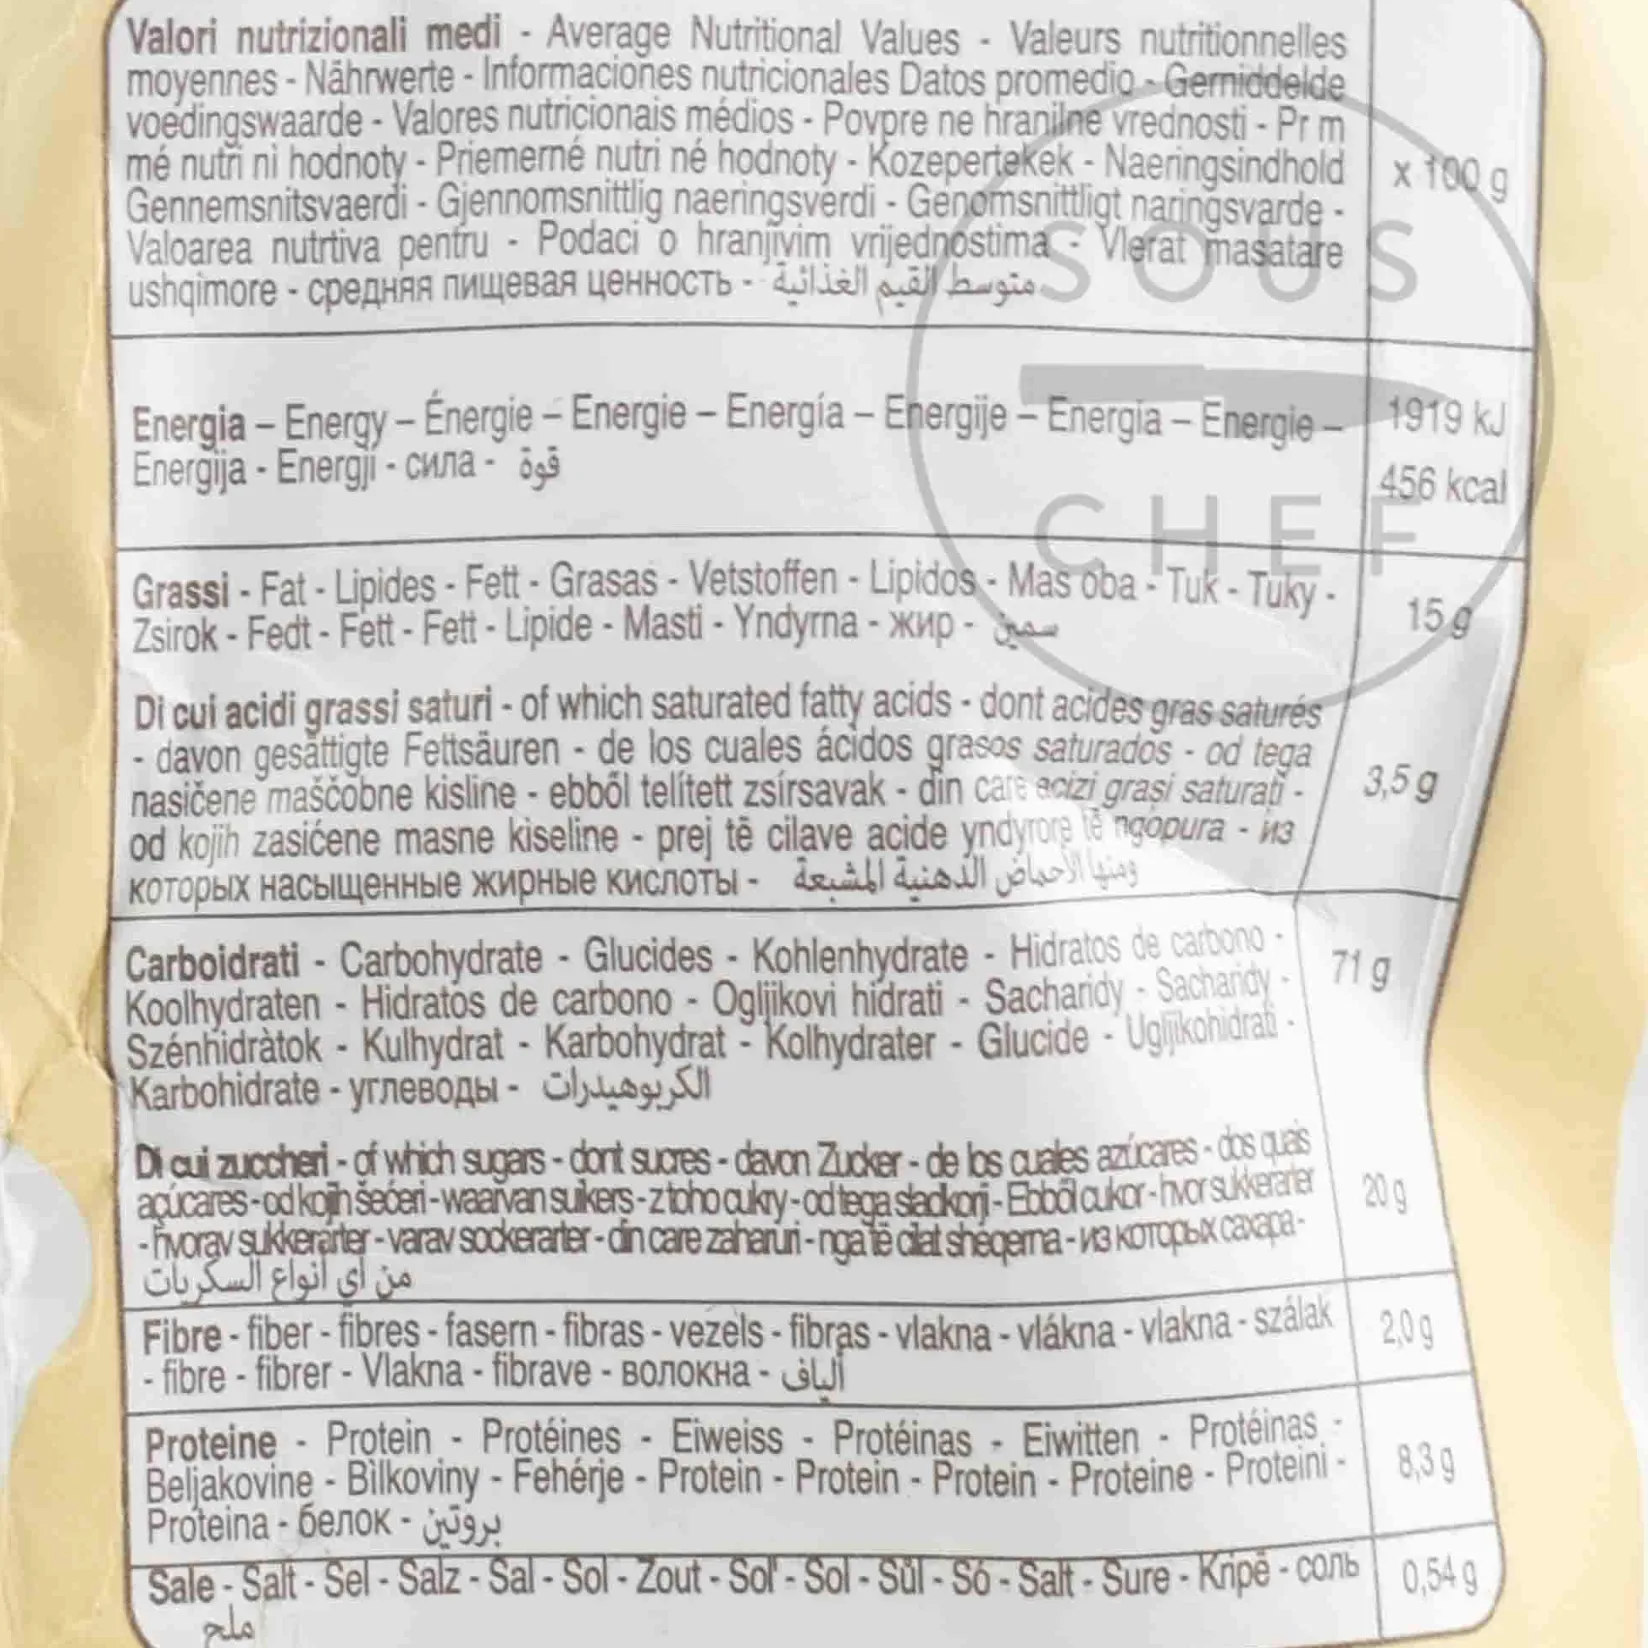 Valori nutrizionali medi - Average Nutritional Values - Valeurs nutritionnelles
moyennes - Nährwerte - Informaciones nutricionales Datos promedio - Gemiddelde
voedingswaarde - Valores nutricionais médios - Povpre ne hranilne vrednosti - Pr m
mé nutri ni hodnoty - Priemerné nutri né hodnoty - Kozepertekek - Naeringsindhold
x 100 g
Gennemsnitsvaerdi - Gjennomsnittlig naeringsverdi - Genomsnittligt naringsvarde -
Valoarea nutrtiva pentru - Podaci o hranjivim vrijednostima - Vlerat masatare
ushqimore - средняя пищевая ценность - متوسط القيم الغذائية
SOUS
CHEF
Energia – Energy – Énergie – Energie – Energía – Energije – Energia – Energie –
1919 kJ
Energija - Energji - сила - قوة
456 kcal
Grassi - Fat - Lipides - Fett - Grasas - Vetstoffen - Lipidos - Maš oba - Tuk - Tuky -
15 g
Zsirok - Fedt - Fett - Fett - Lipide - Masti - Yndyrna - жир - سمين
Di cui acidi grassi saturi - of which saturated fatty acids - dont acides gras saturés
- davon gesättigte Fettsäuren - de los cuales ácidos grasos saturados - od tega
3,5 g
nasičene maščobne kisline - ebből telített zsírsavak - din care acizi grași saturați -
od kojih zasićene masne kiseline - prej të cilave acide yndyrore të ngopura - из
которых насыщенные жирные кислоты - ومنها الأحماض الذهنية المشبعة
Carboidrati - Carbohydrate - Glucides - Kohlenhydrate - Hidratos de carbono -
71 g
Koolhydraten - Hidratos de carbono - Ogljikovi hidrati - Sacharidy - Sacharidy -
Szénhidràtok - Kulhydrat - Karbohydrat - Kolhydrater - Glucide - Ugljikohidrati -
Karbohidrate - углеводы - الكربوهيدرات
Di cui zuccheri - of which sugars - dont sucres - davon Zucker - de los cuales azúcares - dos quais
açúcares - od kojih šećeri - waarvan suikers - z toho cukry - od tega sladkorji - Ebből cukor - hvor sukkerarter
20 g
- hvorav sukkerarter - varav sockerarter - din care zaharuri - nga të cilat sheqerna - из которых сахара -
من أي أنواع السكريات
Fibre - fiber - fibres - fasern - fibras - vezels - fibras - vlakna - vlákna - vlakna - szálak
2,0 g
- fibre - fibrer - Vlakna - fibrave - волокна - ألياف
Proteine - Protein - Protéines - Eiweiss - Protéinas - Eiwitten - Protéinas -
Beljakovine - Bìlkoviny - Fehérje - Protein - Protein - Protein - Proteine - Proteini -
8,3 g
Proteina - белок - بروتين
Sale - Salt - Sel - Salz - Sal - Sol - Zout - Sol' - Sol - Sůl - Só - Salt - Sure - Kripë - соль
0,54 g
ملح